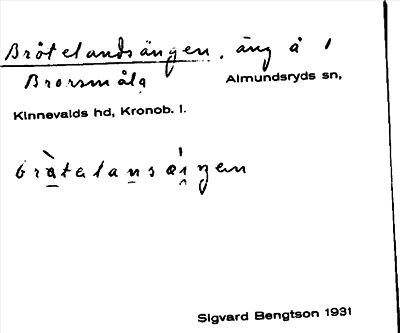 Brötelandsängen, äng å
Brorsmåla Almundsryds sn,
Kinnevalds hd, Kronob. l.
Sigvard Bengtson 1931